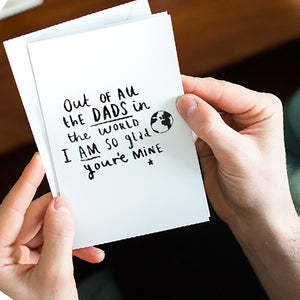 Out OF ALL
the DADS in
the WORLD
I AM SO glad
you're MINE